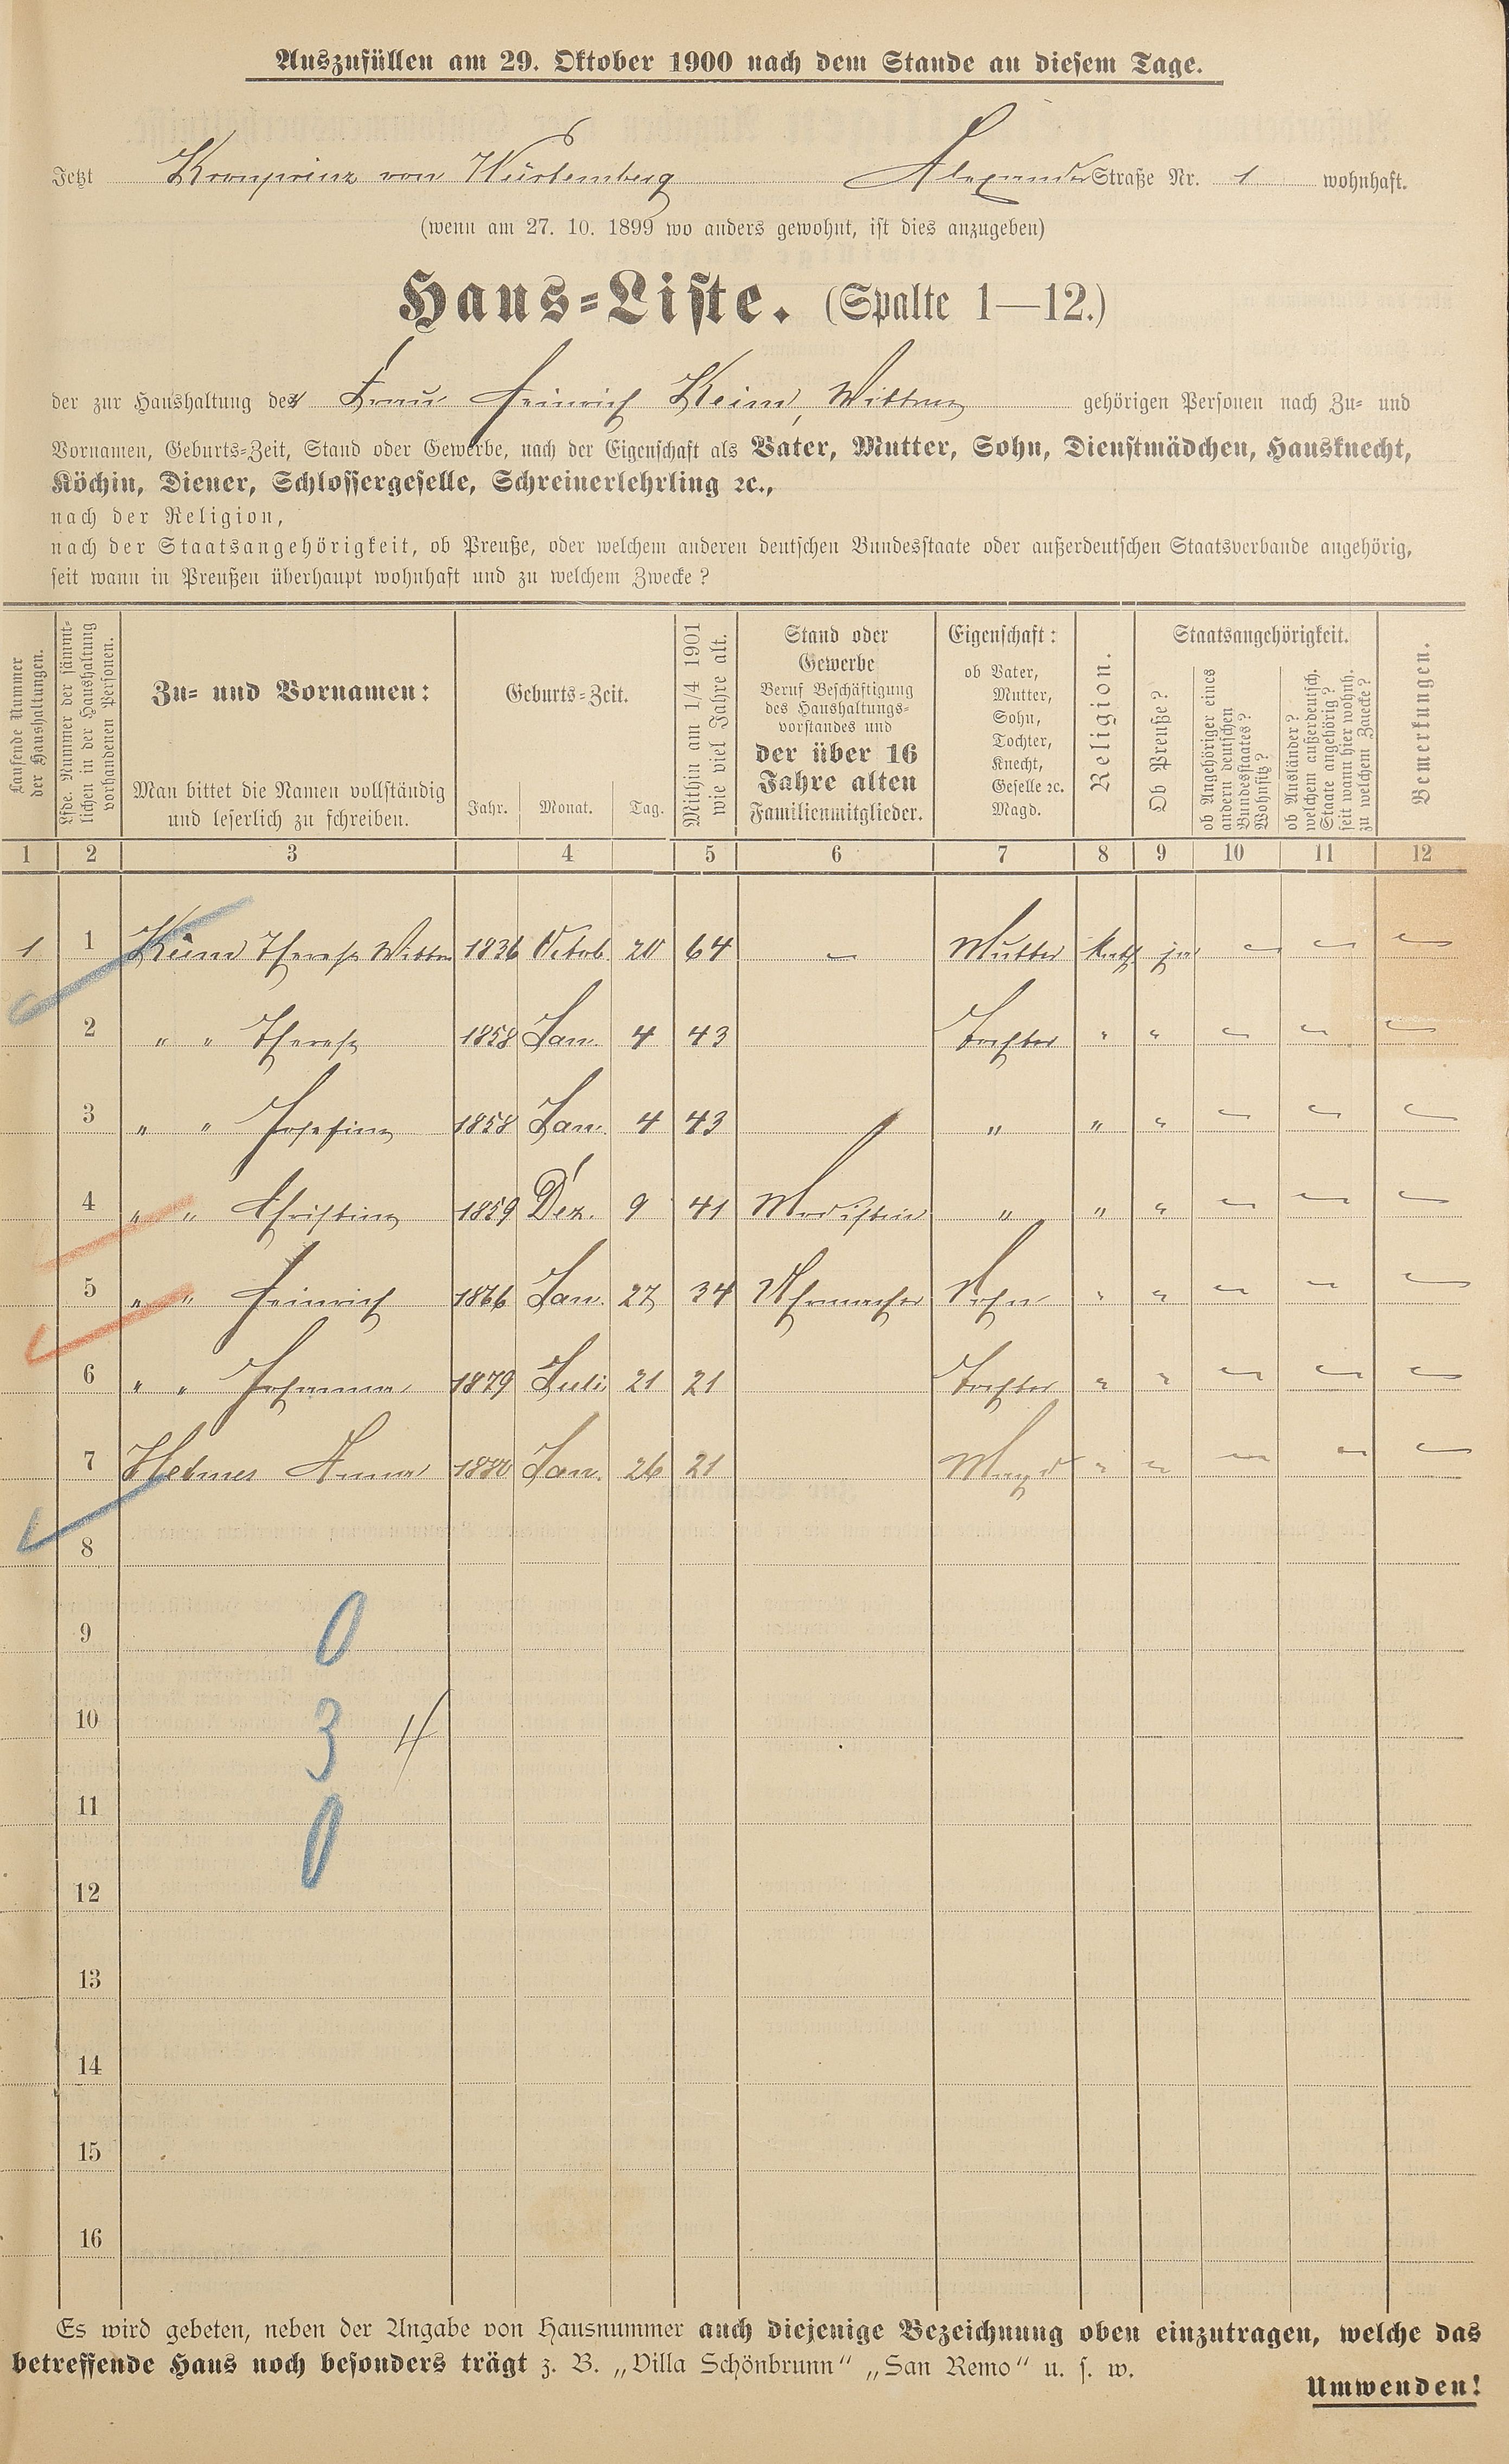 Auszufüllen am 29. Oktober 1900 nach dem Stande an diesem Tage.
Jetzt Kronprinz von Würtemberg Alexander Straße Nr. 1 wohnhaft.
(wenn am 27. 10. 1899 wo anders gewohnt, ist dies anzugeben)
Haus-Liste. (Spalte 1—12.)
der zur Haushaltung der Frau Heinrich Keim, Wittwe gehörigen Personen nach Zu- und
Vornamen, Geburts-Zeit, Stand oder Gewerbe, nach der Eigenschaft als Vater, Mutter, Sohn, Dienstmädchen, Hausknecht,
Köchin, Diener, Schlossergeselle, Schreinerlehrling ꝛc.,
nach der Religion,
nach der Staatsangehörigkeit, ob Preuße, oder welchem anderen deutschen Bundesstaate oder außerdeutschen Staatsverbande angehörig,
seit wann in Preußen überhaupt wohnhaft und zu welchem Zwecke?
Laufende Nummer
der Haushaltungen.
Lfde. Nummer der sämmt-
lichen in der Haushaltung
vorhandenen Personen.
Zu- und Vornamen:
Man bittet die Namen vollständig
und leserlich zu schreiben.
Geburts-Zeit.
Jahr. Monat. Tag.
Mithin am 1/4 1901
wie viel Jahre alt.
Stand oder
Gewerbe
Beruf Beschäftigung
des Haushaltungs-
vorstandes und
der über 16
Jahre alten
Familienmitglieder.
Eigenschaft:
ob Vater,
Mutter,
Sohn,
Tochter,
Knecht,
Geselle ꝛc.
Magd.
Religion.
Staatsangehörigkeit.
Ob Preuße?
ob Angehöriger eines
andern deutschen
Bundesstaates?
Wohnsitz?
ob Ausländer?
welchem außerdeutsch.
Staate angehörig?
seit wann hier wohnh.
zu welchem Zwecke?
Bemerkungen.
1 2 3 4 5 6 7 8 9 10 11 12
1 1 Keim Therese Wittwe 1836 Octob. 20 64 — Mutter kath ja — — —
2 " " Therese 1858 Jan. 4 43 Tochter " " — — —
3 " " Josefine 1858 Jan. 4 43 " " " — — —
4 " " Christine 1859 Dez. 9 41 Modistin " " " — — —
5 " " Heinrich 1866 Jan. 27 34 Uhrmacher Sohn " " — — —
6 " " Johanna 1879 Juli 21 21 Tochter " " — — —
7 Helmes Anna 1880 Jan. 26 21 Magd " " — — —
8
9 0
10 3 4
11 0
12
13
14
15
16
Es wird gebeten, neben der Angabe von Hausnummer auch diejenige Bezeichnung oben einzutragen, welche das
betreffende Haus noch besonders trägt z. B. „Villa Schönbrunn“ „San Remo“ u. s. w.
Umwenden!